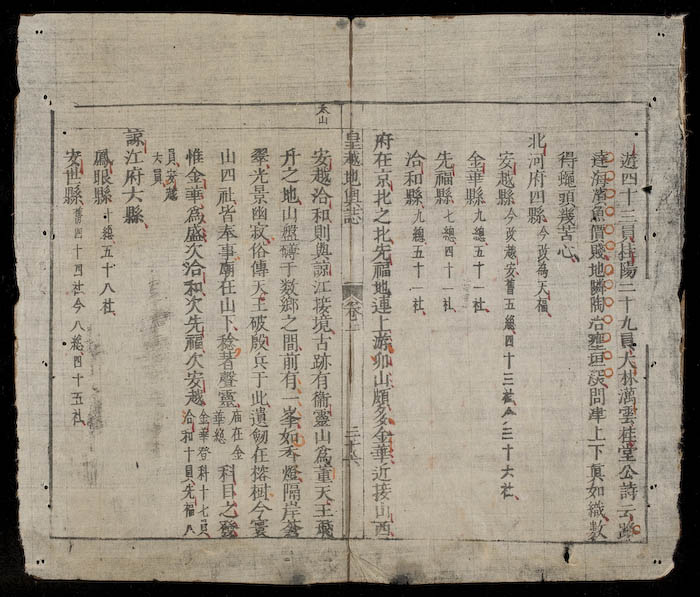 遊四十三員桂陽二十九員大林萬雲桂堂公詩云路
達海濱魚價賤地隣陶冶壅垣淡問津上下眞如織数
得蠅頭幾苦心
北河府四縣 今改為天福
安越縣 今改越安舊五總四十三社今三十六社
金華縣 九總五十一社
先福縣 七總四十一社
洽和縣 九總五十一社
府在京北之北先福地連上游卯山頗多金華近接山西
皇越地輿誌 卷二 三十六
太山
安越洽和則與諒江接境古跡有衛靈山為董天王飛
升之地山盤礡于数鄉之間前有一峯如香燈隔岸蒼
翠光景幽寂俗傳天王破殷兵于此遺劒在榕樹今寰
山四社皆奉事庙在山下稔著聲靈 庙在金華總 科目之發
惟金華為盛次洽和次先福次安越 金華登科十七員洽和十員先福八
員安越大員
諒江府六縣
鳳眼縣 十總五十八社
安世縣 舊四十四社今八總四十五社